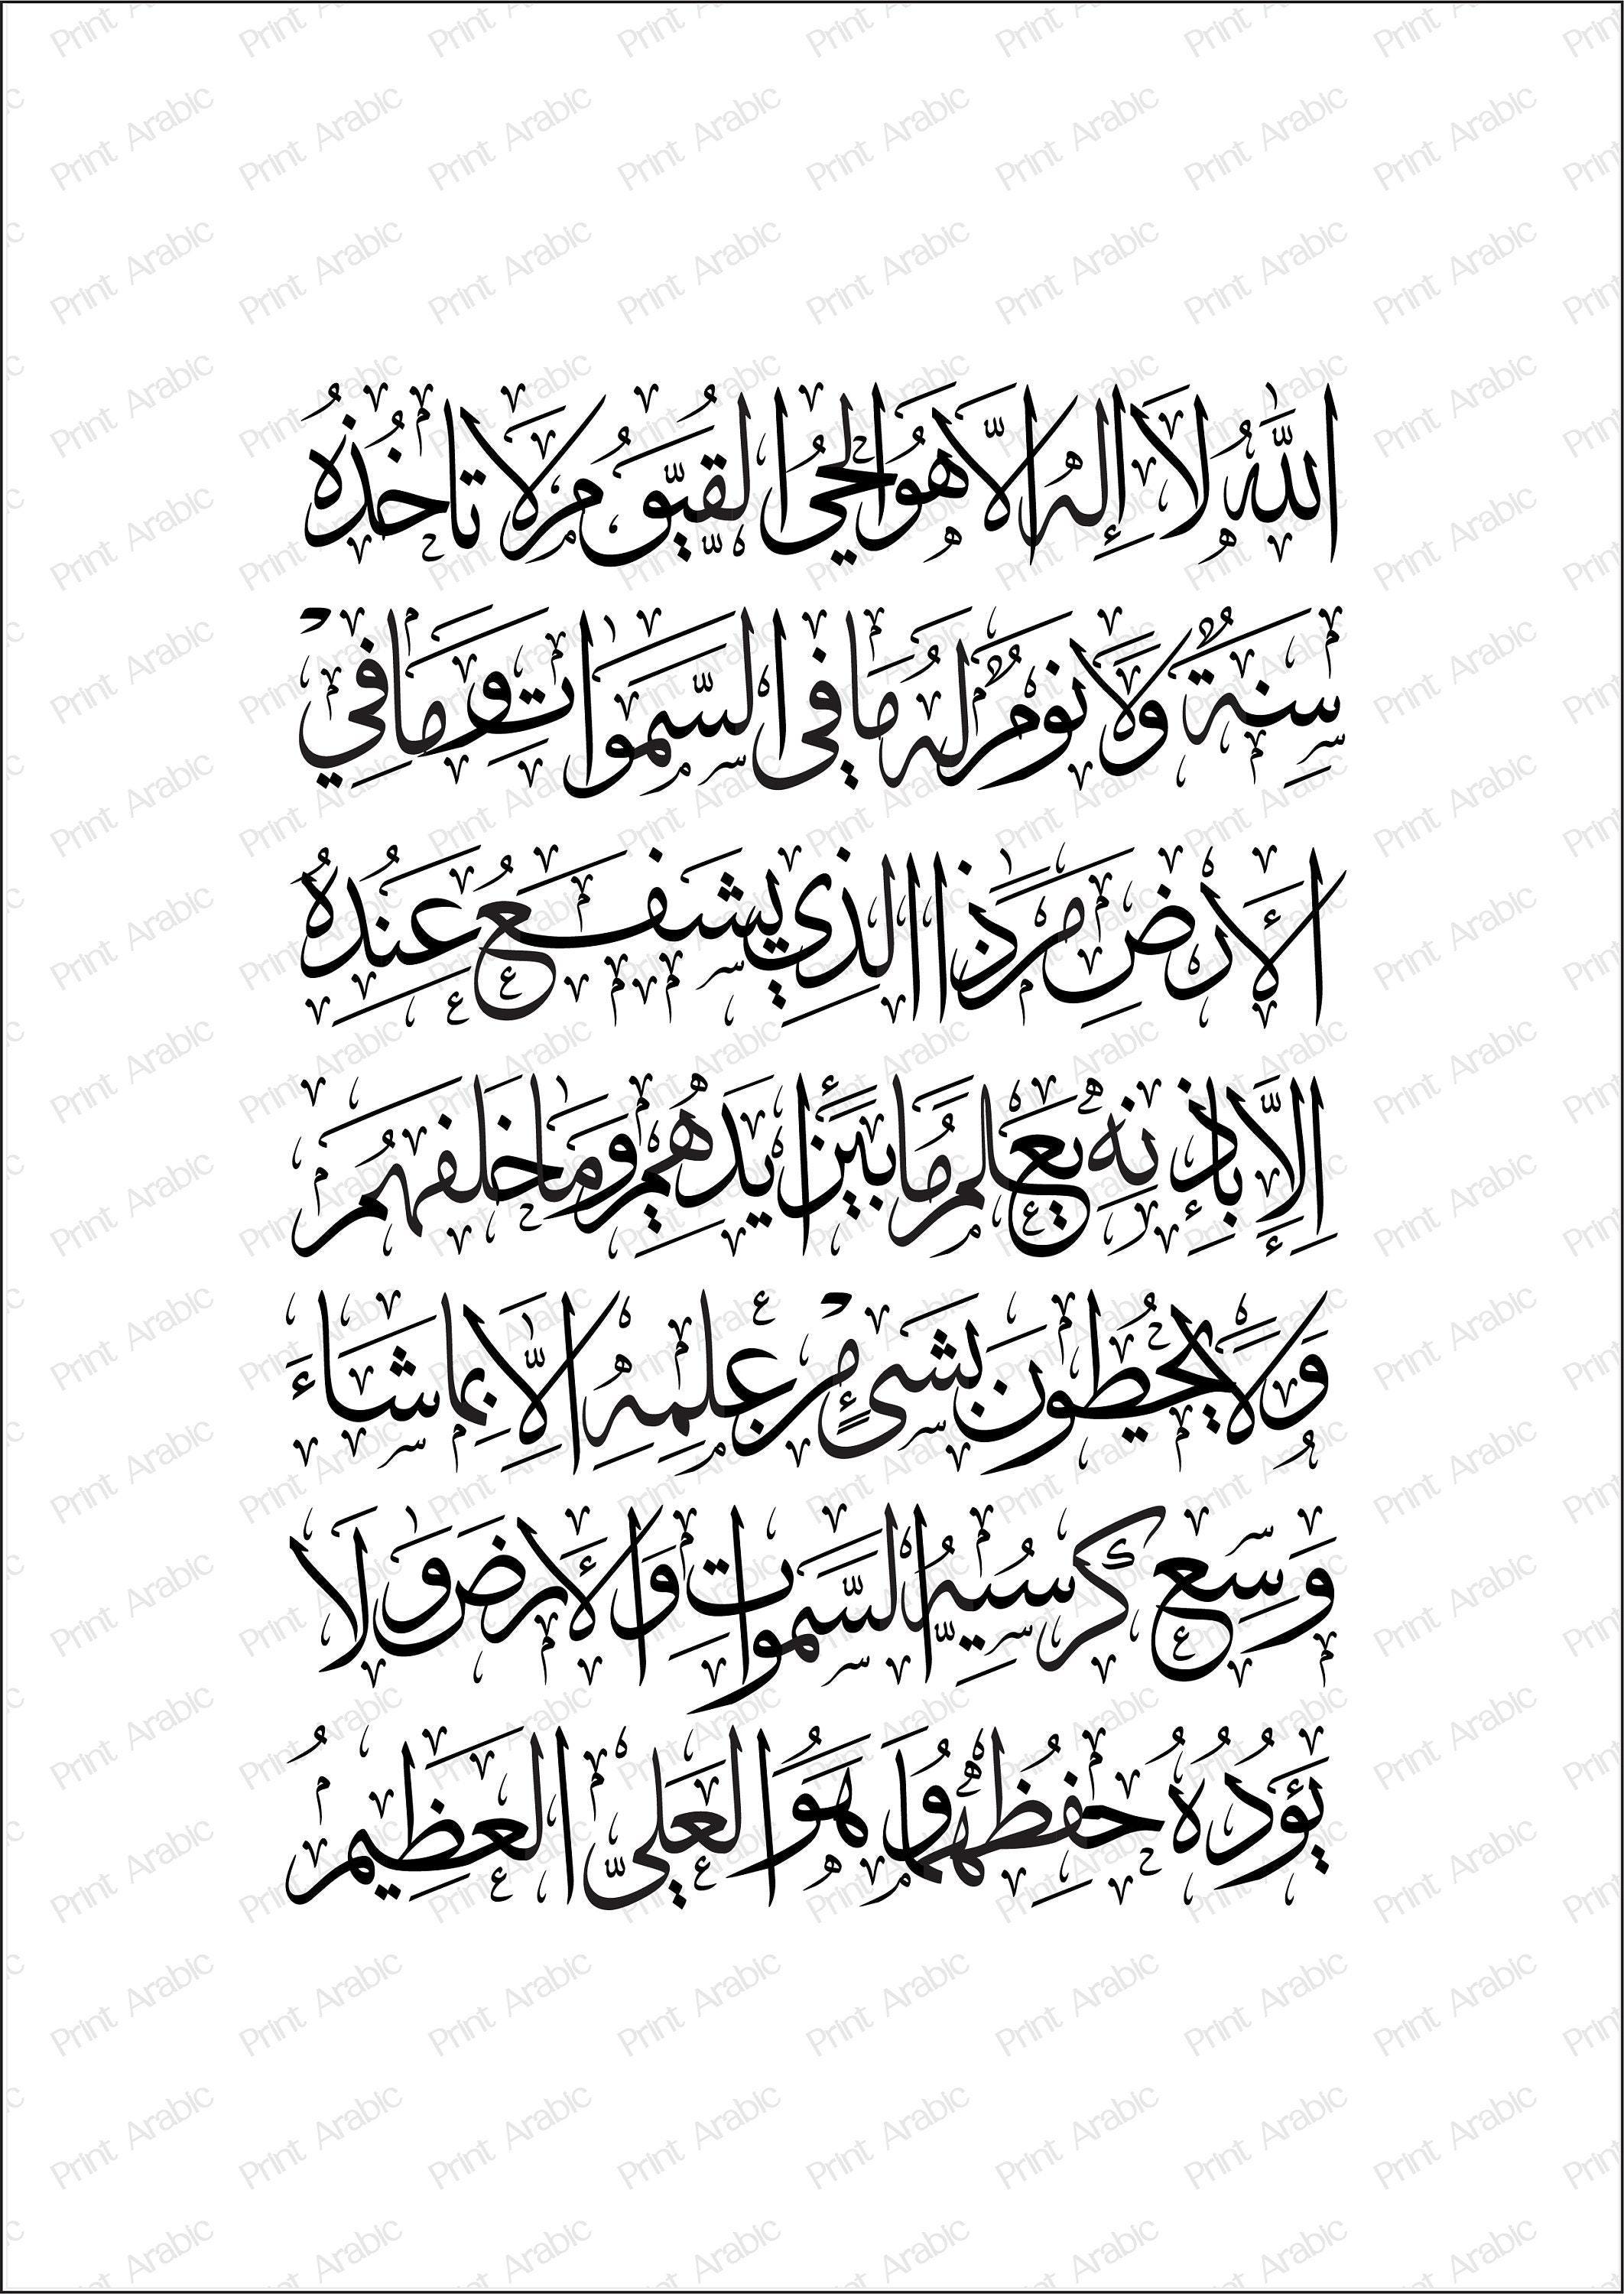 اللّٰهُ لَا إِلٰهَ إِلَّا هُوَ الْحَيُّ الْقَيُّومُ لَا تَأْخُذُهُ
سِنَةٌ وَلَا نَوْمٌ لَهُ مَا فِي السَّمٰوَاتِ وَمَا فِي
الْأَرْضِ مَنْ ذَا الَّذِي يَشْفَعُ عِنْدَهُ
إِلَّا بِإِذْنِهِ يَعْلَمُ مَا بَيْنَ أَيْدِيهِمْ وَمَا خَلْفَهُمْ
وَلَا يُحِيطُونَ بِشَيْءٍ مِنْ عِلْمِهِ إِلَّا بِمَا شَاءَ
وَسِعَ كُرْسِيُّهُ السَّمٰوَاتِ وَالْأَرْضَ وَلَا
يَئُودُهُ حِفْظُهُمَا وَهُوَ الْعَلِيُّ الْعَظِيمُ
Print Arabic